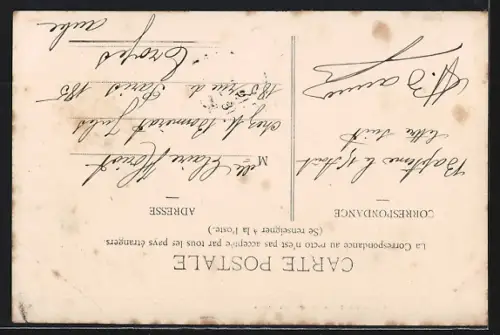 CARTE POSTALE
La Correspondance au recto n'est pas acceptée par tous les pays étrangers.
(Se renseigner à la Poste.)
CORRESPONDANCE
Baptême le 15 Août
lettre suit
ADRESSE
Melle Claire
chez M. Jules
185 rue de Paris 185
Troyes
Aube